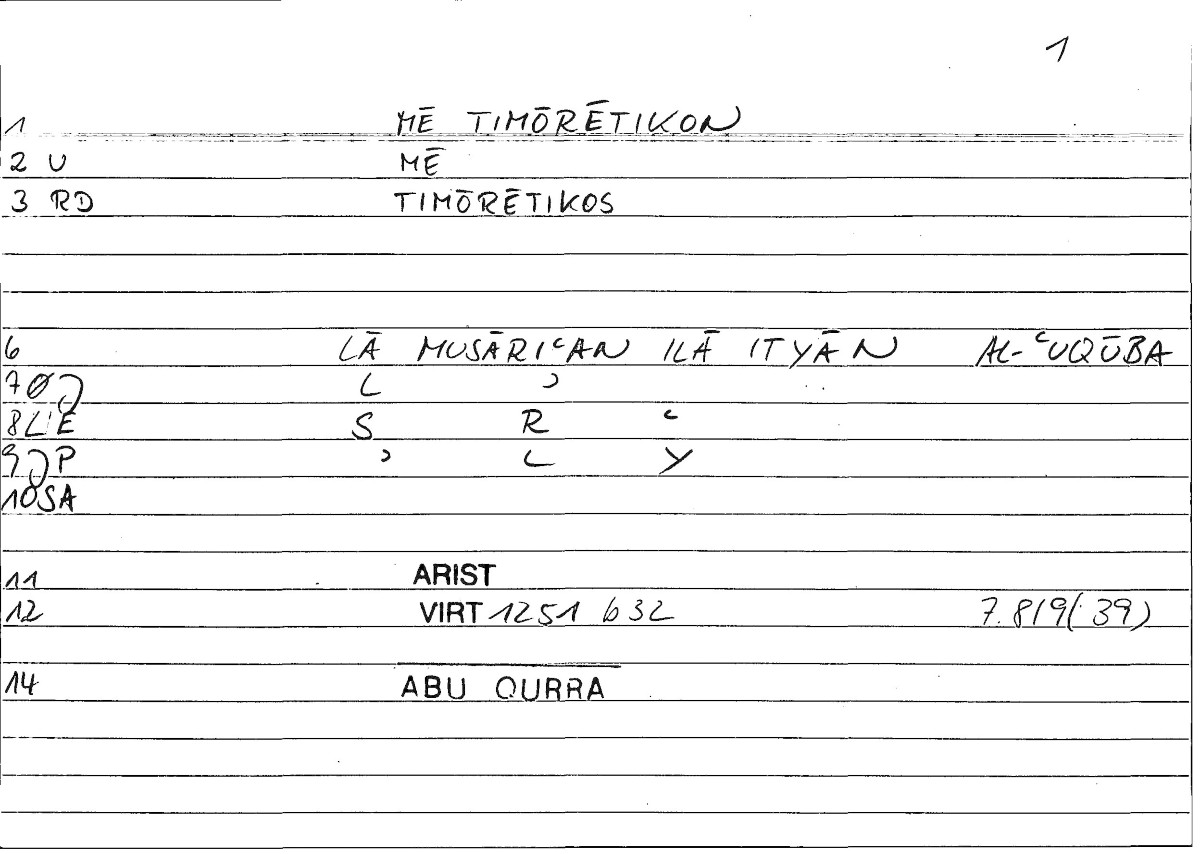 1
1 MĒ TIMŌRĒTIKON
2 U MĒ
3 RD TIMŌRĒTIKOS
6 LĀ MUSĀRIʿAN ILĀ ITYĀN AL-ʿUQŪBA
L ʾ
S R ʿ
ʾ L Y
10SA
11 ARIST
12 VIRT 1251 b 32 7.8/9(39)
14 ABU QURRA